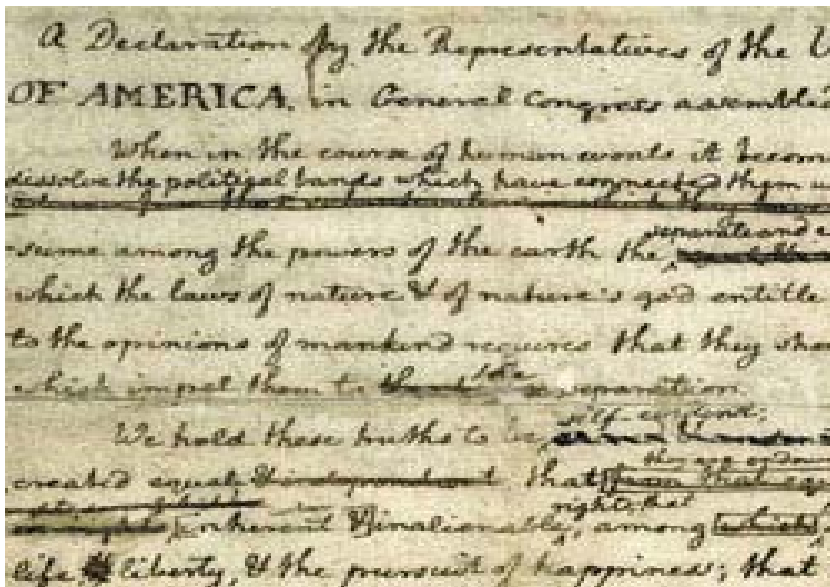 A Declaration by the Representatives of the U
OF AMERICA, in General Congress assembled
When in the course of human events it become
dissolve the political bands which have connected them
separate and e
sume among the powers of the earth the
which the laws of nature & of nature's god entitle
to the opinions of mankind requires that they shou
which impel them to the separation.
self-evident;
We hold these truths to be
they are endow
created equal & independent that from that equ
rights; that
inherent & inalienable, among which
life & liberty, & the pursuit of happiness; that